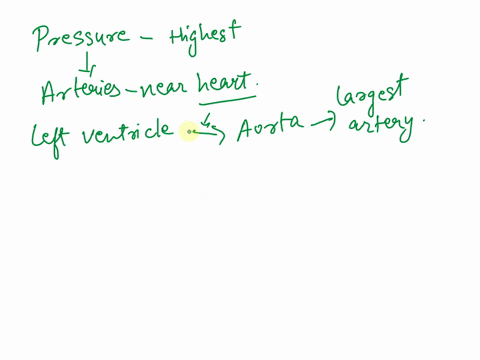 Pressure - Highest
Arteries - near heart.
left ventricle → Aorta → largest artery.